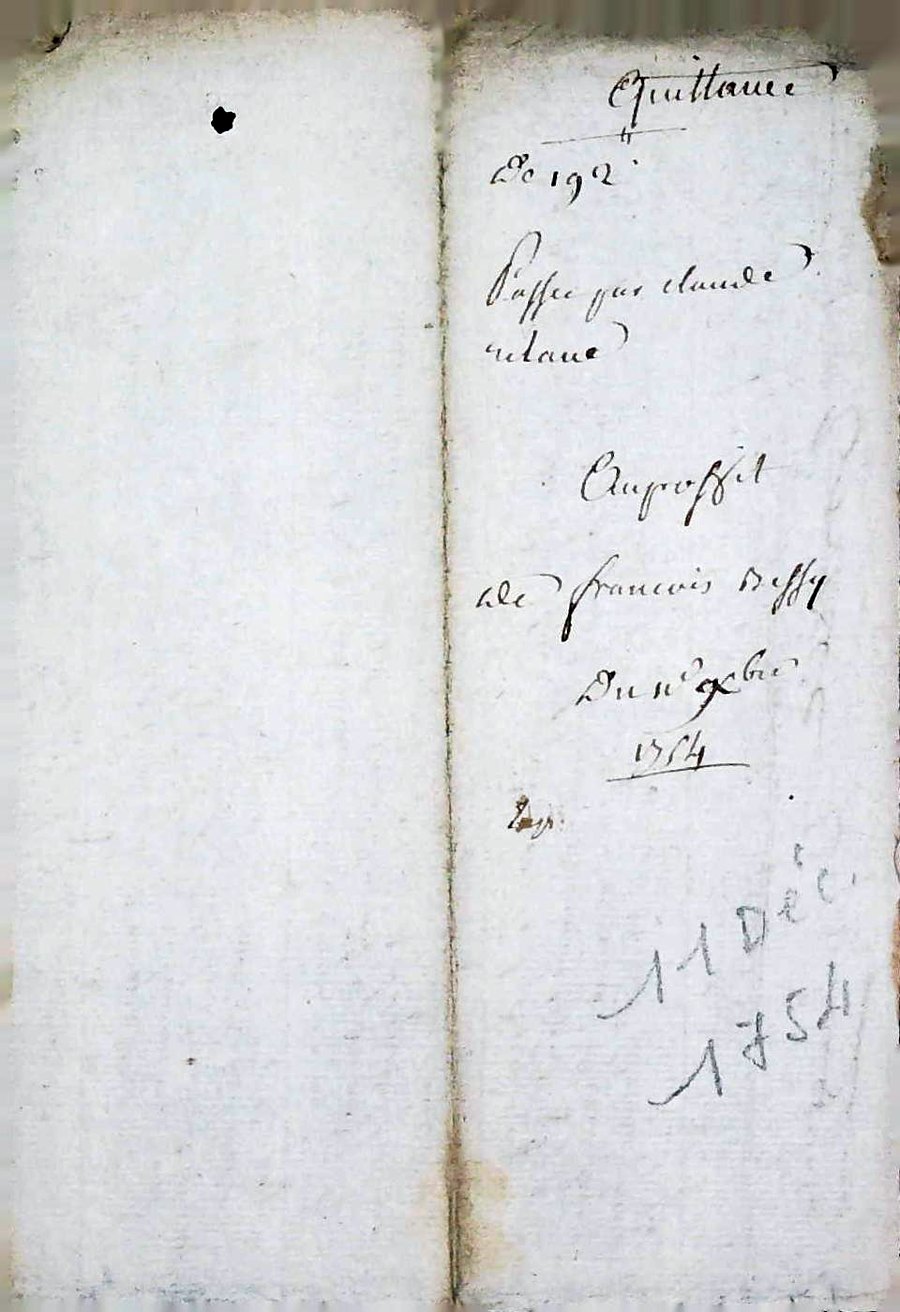 Quittance
De 192
Passee par claude
Au proffit
de francois Bessy
Du 11e xbre
1754
11 Déc.
1754